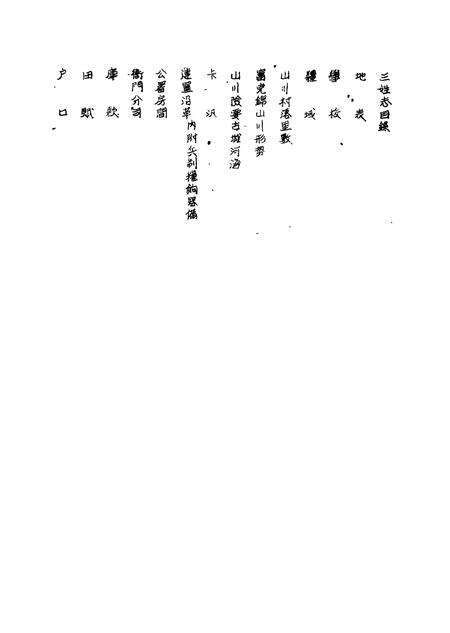 三姓志目錄
地表
學校
疆域
山川村落里數
富克錦山川形勢
山川險要古城河海
卡汛
建置沿革內附兵制糧餉器儀
公署房間
衙門分司
庫款
田賦
户口